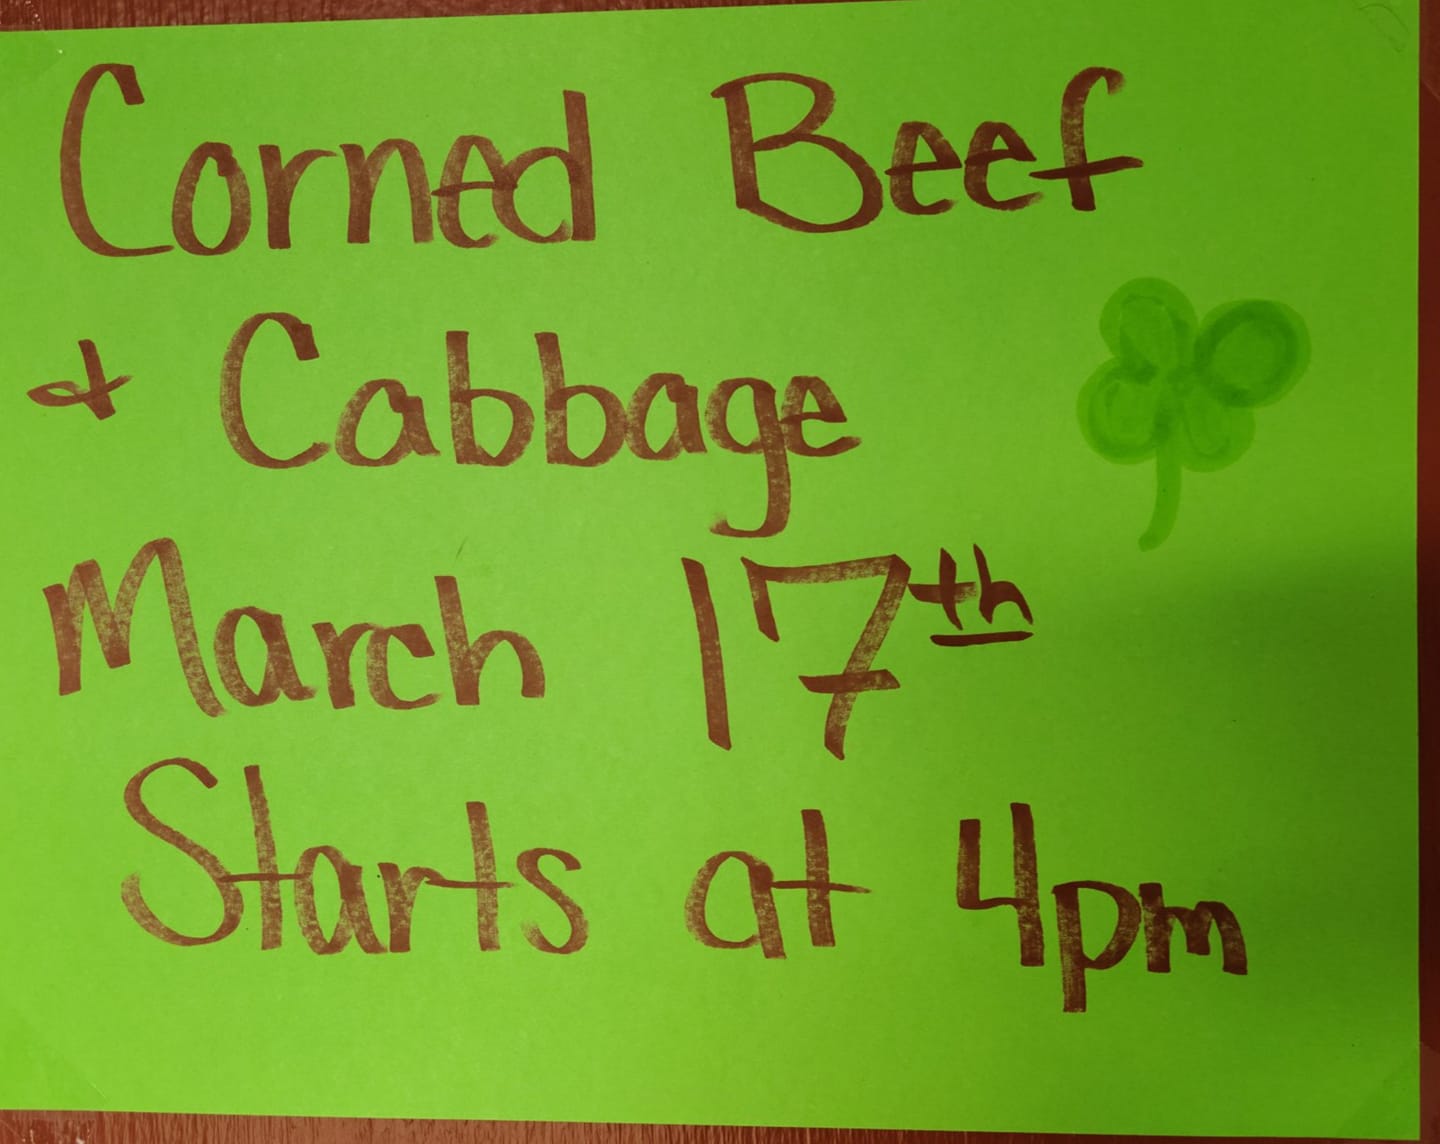 Corned Beef
+ Cabbage
March 17th
Starts at 4pm